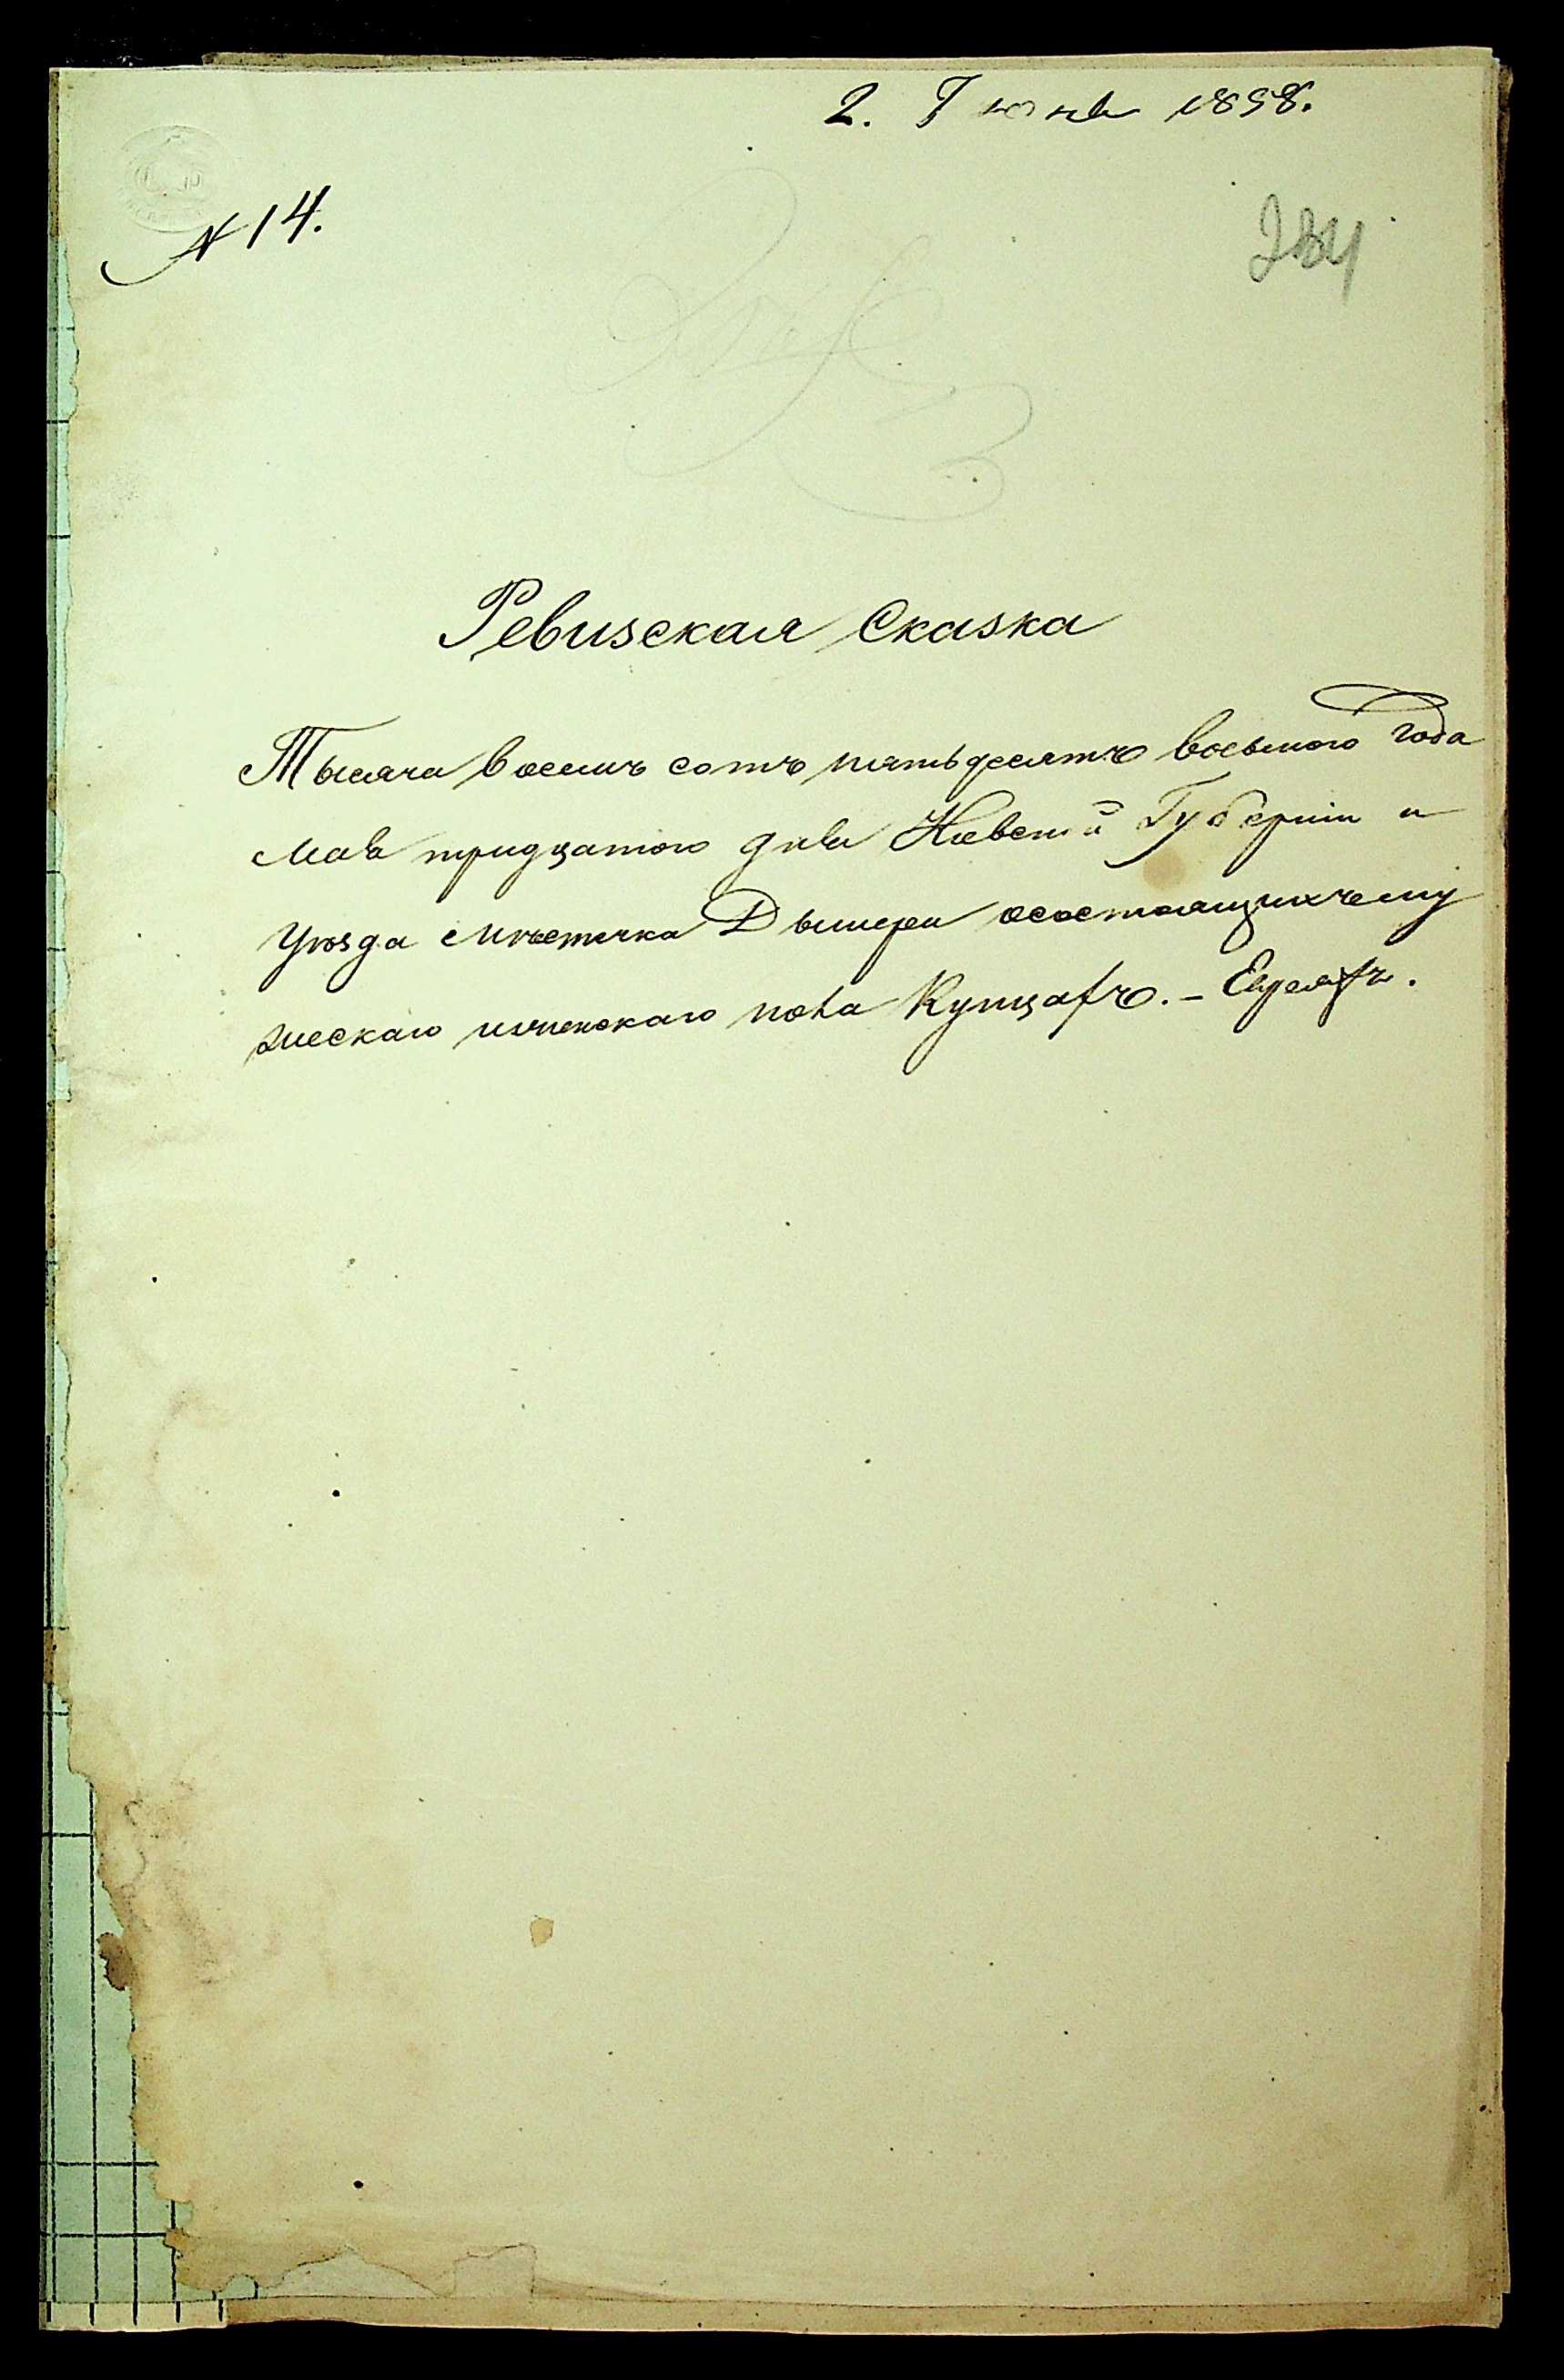 2. Іюня 1858.
№ 14.
284
Ревизская Сказка
Тысяча восемь сотъ пятьдесятъ восьмого года
мая тридцатого дня Кіевской Губерніи и
уѣзда мѣстечка Дымера осостоящихъ му
жескаго иженскаго пола Купцахъ. - Евреяхъ.